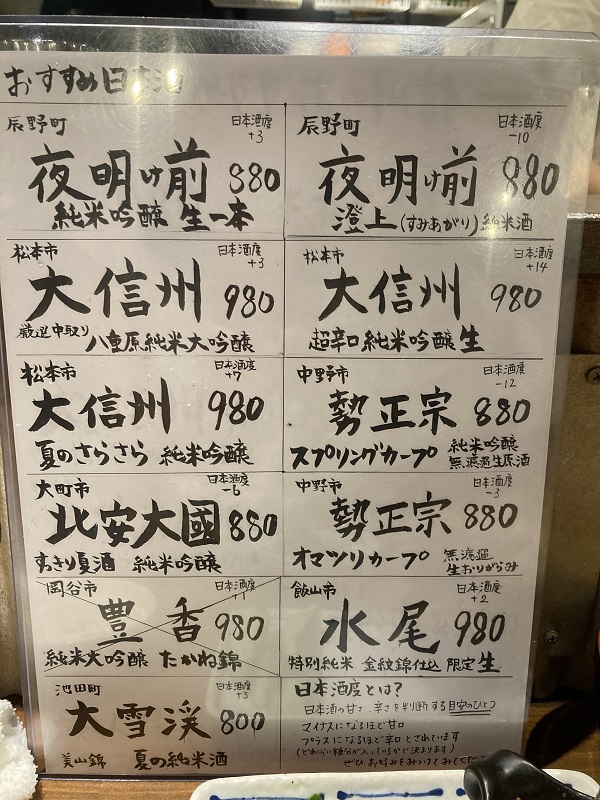 おすすめ日本酒
辰野町 日本酒度 +3
夜明け前 880
純米吟醸 生一本
辰野町 日本酒度 -10
夜明け前 880
澄上(すみあがり)純米酒
松本市 日本酒度 +3
大信州 980
厳選中取り 八重原純米大吟醸
松本市 日本酒度 +14
大信州 980
超辛口純米吟醸 生
松本市 日本酒度 +7
大信州 980
夏のさらさら 純米吟醸
中野市 日本酒度 -12
勢正宗 880
スプリングカープ 純米吟醸 無濾過生原酒
大町市 日本酒度 -6
北安大國 880
すっきり夏酒 純米吟醸
中野市 日本酒度 -3
勢正宗 880
オマツリカープ 無濾過 生おりがらみ
岡谷市 日本酒度 +1
豊香 980
純米大吟醸 たかね錦
飯山市 日本酒度 +2
水尾 980
特別純米 金紋錦仕込 限定生
池田町 日本酒度 +3
大雪渓 800
美山錦 夏の純米酒
日本酒度とは?
日本酒の甘さ、辛さを判断する目安のひとつ
マイナスになるほど甘口
プラスになるほど辛口とされています
(どれくらい糖分が入っているかで決まります)
ぜひお好みをみつけてみてくださ